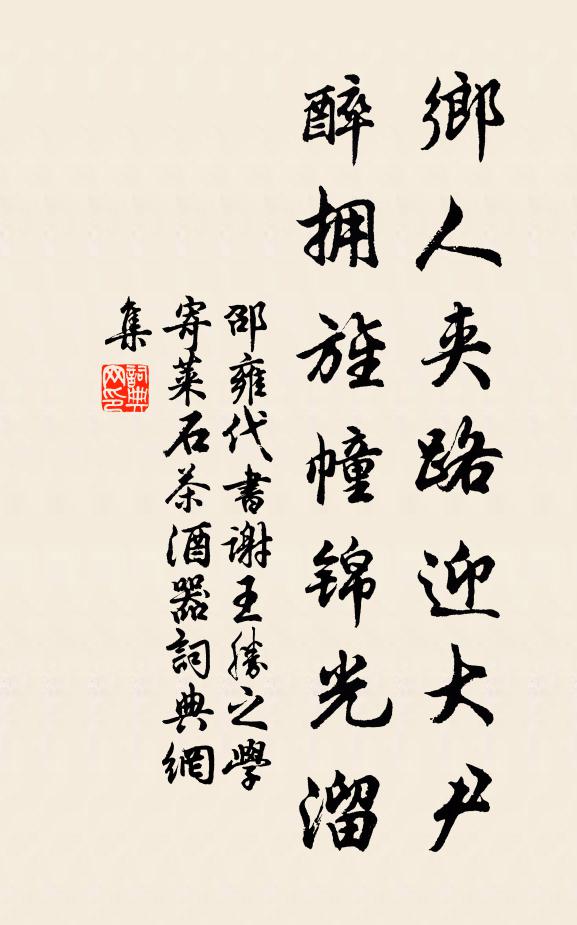 鄉人夾路迎大尹
醉拥旌幢锦光溜
邵雍代書謝王勝之學
寄萊石茶酒器詞典網
集
詞典
网印